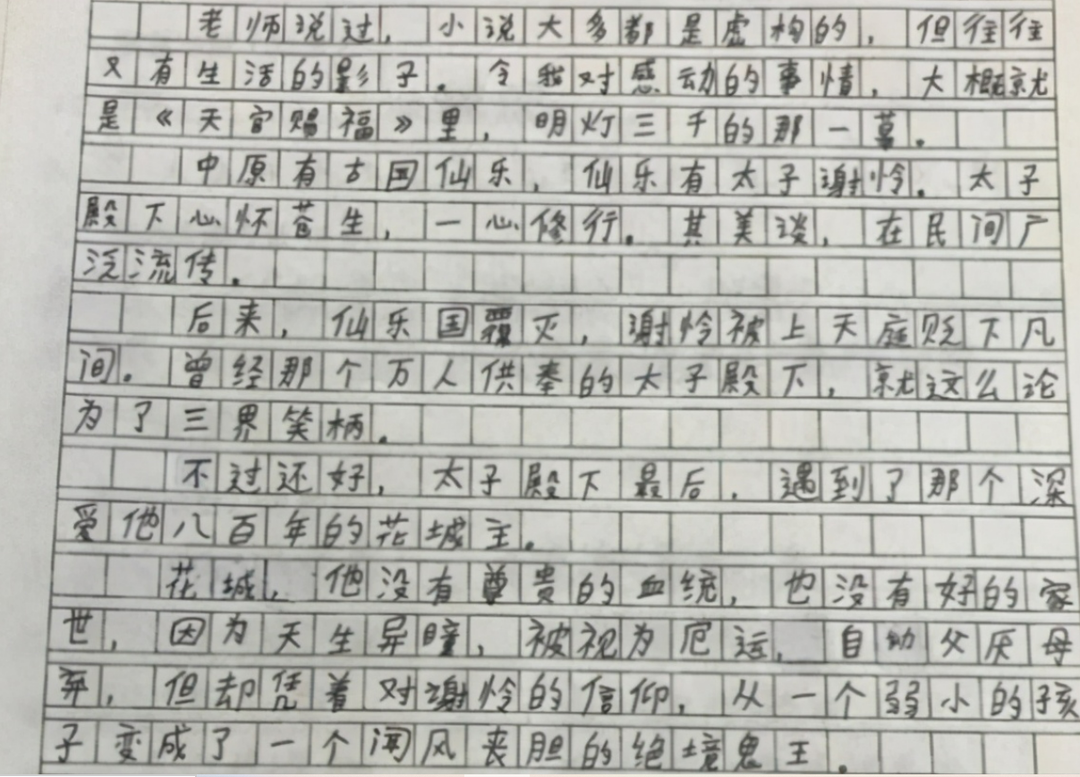 老师说过，小说大多都是虚构的，但往往
又有生活的影子。令我对感动的事情，大概就
是《天官赐福》里，明灯三千的那一幕。
中原有古国仙乐，仙乐有太子谢怜。太子
殿下心怀苍生，一心修行。其美谈，在民间广
泛流传。
后来，仙乐国覆灭，谢怜被上天庭贬下凡
间。曾经那个万人供奉的太子殿下，就这么论
为了三界笑柄。
不过还好，太子殿下最后，遇到了那个深
爱他八百年的花城主。
花城，他没有尊贵的血统，也没有好的家
世，因为天生异瞳，被视为厄运，自幼父厌母
弃，但却凭着对谢怜的信仰，从一个弱小的孩
子变成了一个闻风丧胆的绝境鬼王。